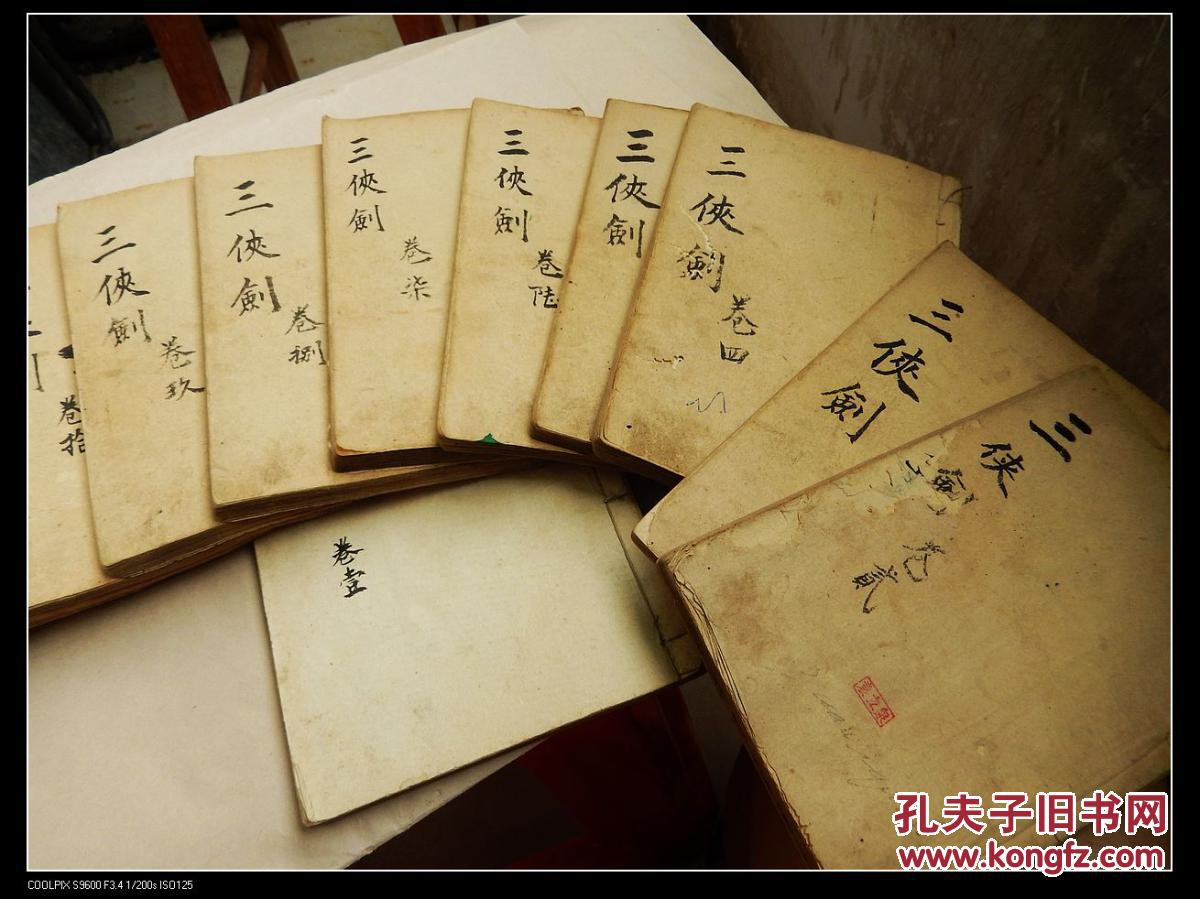 三俠劍
卷拾
三俠劍
卷玖
三俠劍
卷捌
三俠劍
卷柒
三俠劍
卷陆
三俠劍
三俠劍
卷四
三俠劍
三俠劍
卷貳
卷壹
孔夫子旧书网
www.kongfz.com
COOLPIX S9600 F3.4 1/200s ISO125